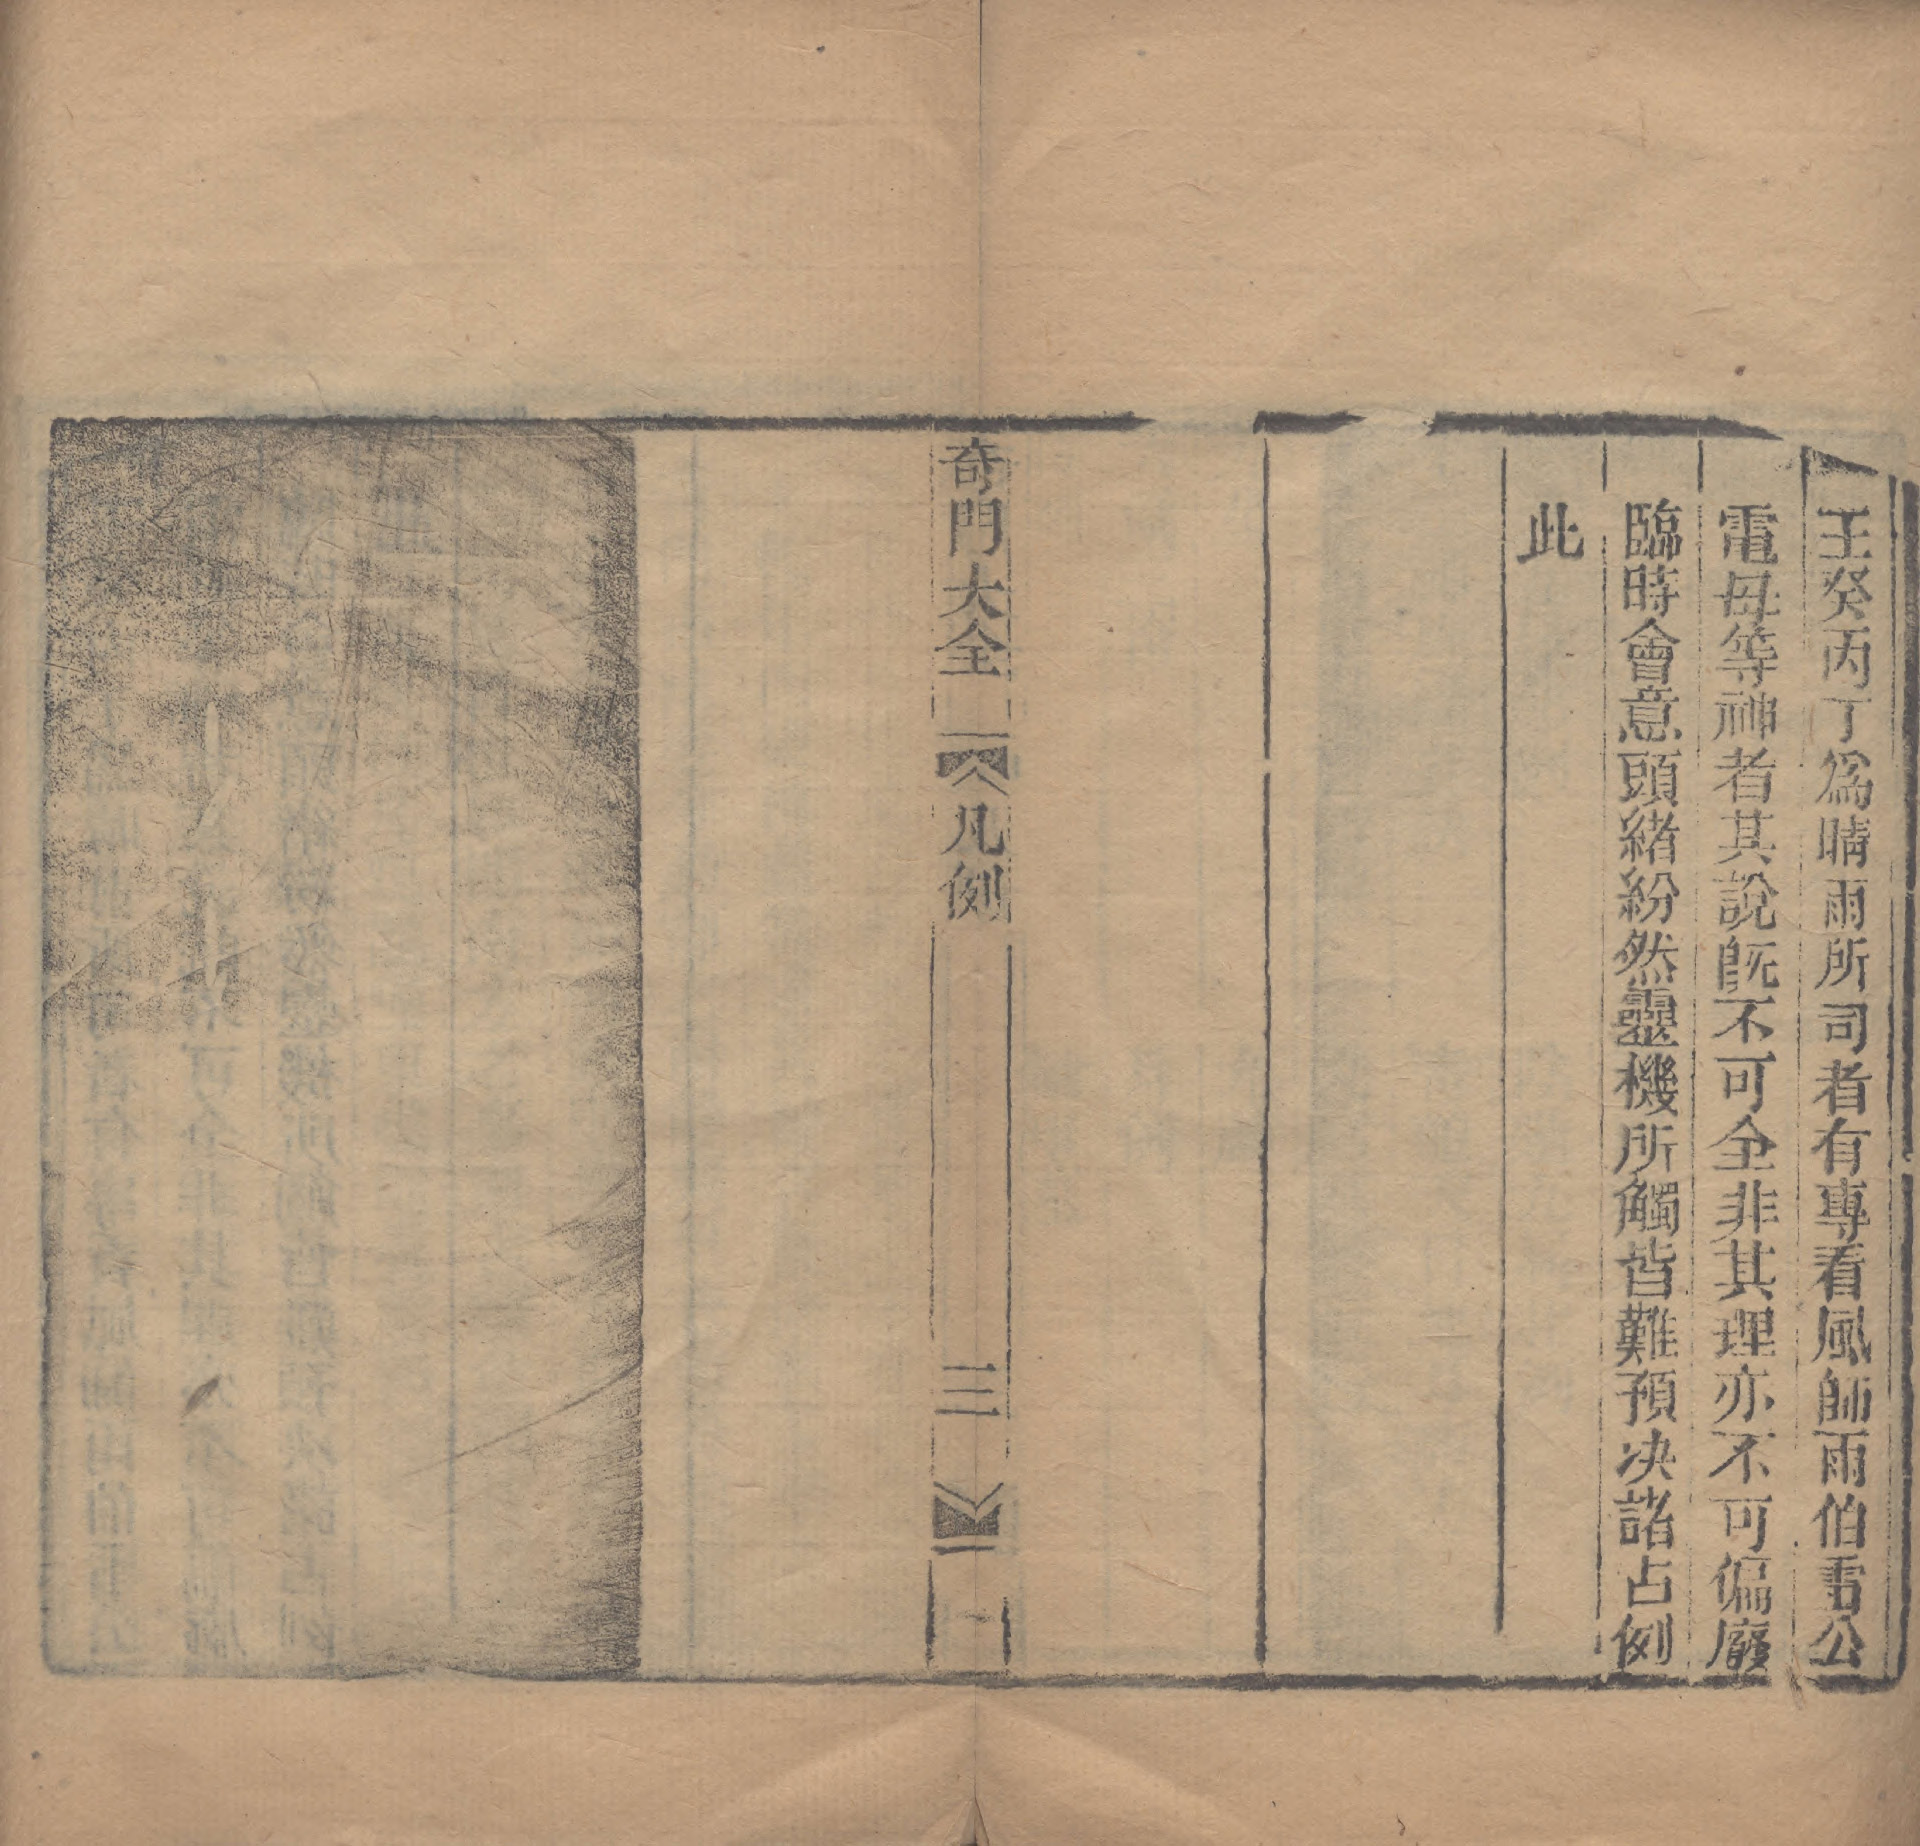 壬癸丙丁爲晴雨所司者有專看風師雨伯雷公
電母等神者其說旣不可全非其理亦不可偏廢
臨時會意頭緒紛然靈機所觸皆難預决諸占例
此
奇門大全 凡例 三